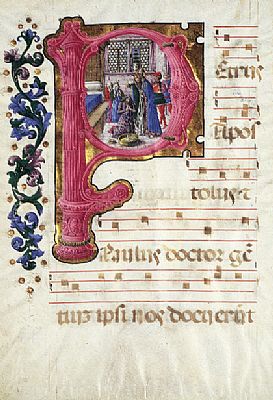 PEtrus
apos
tolus et
Paulus doctor gē
tius ipsi nos docuerūt